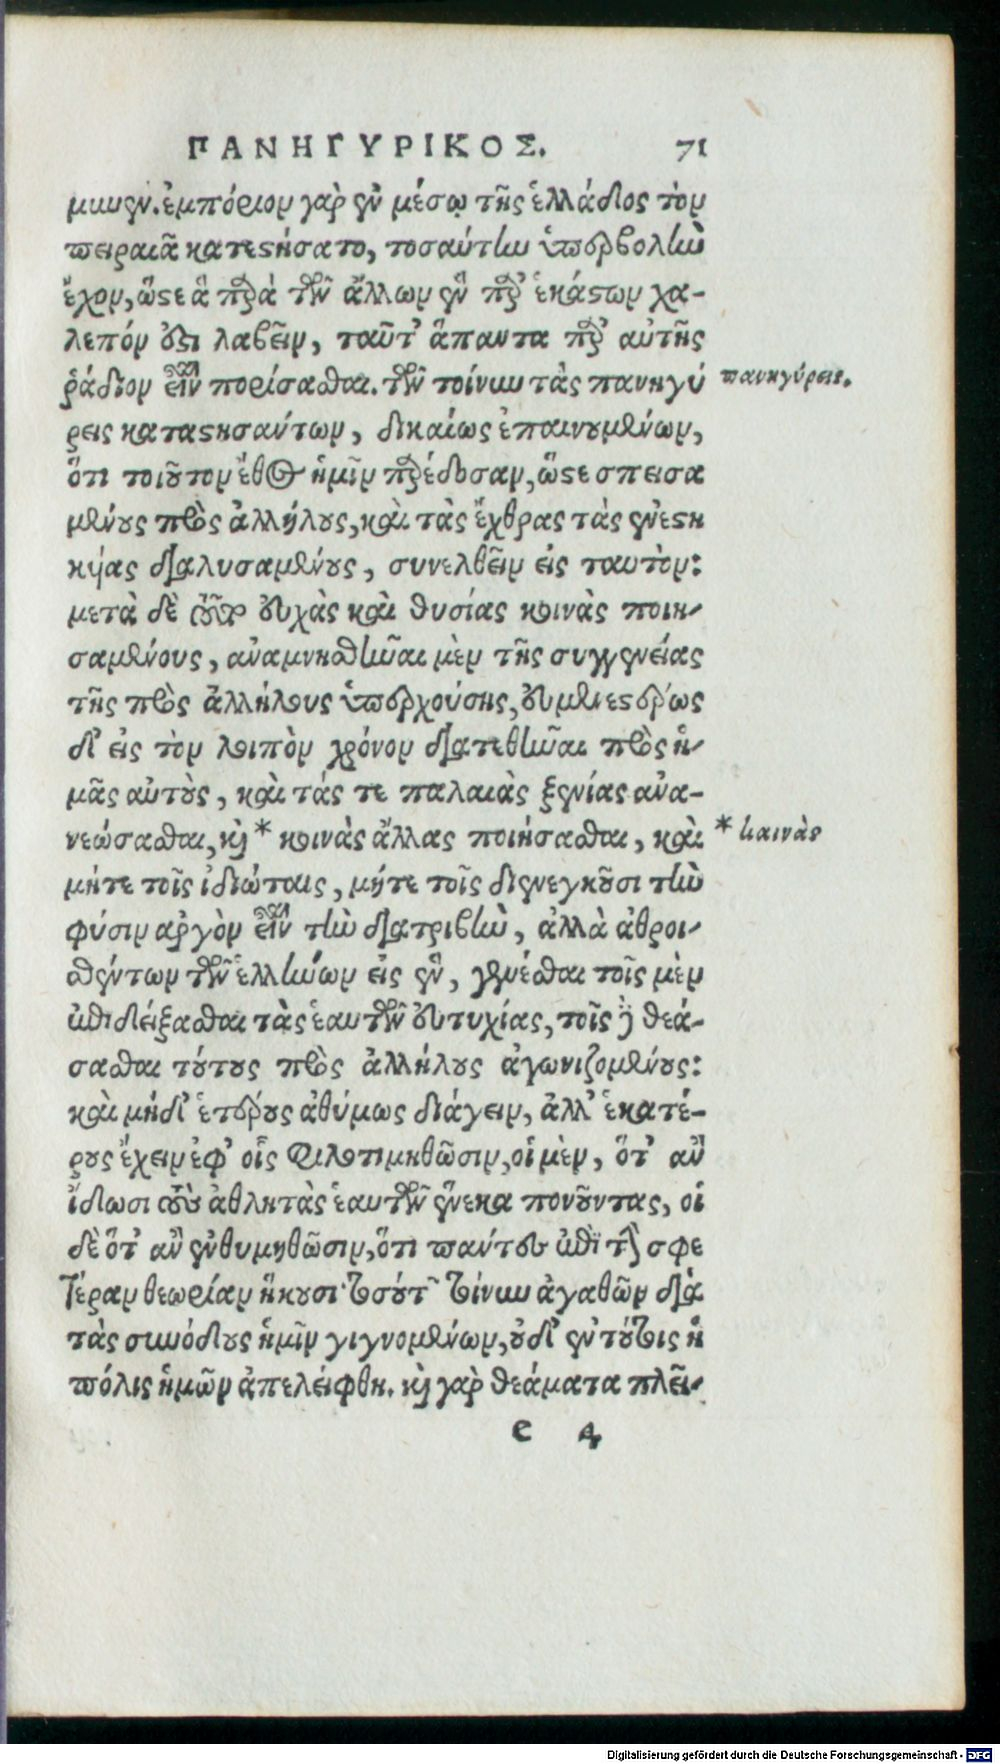 ΠΑΝΗΓΥΡΙΚΟΣ. 71
μυνεν. ἐμπόριον γὰρ ἐν μέσῳ τῆς ἑλλάδος τὸν
πειραιᾶ κατεστήσατο, τοσαύτην ὑπερβολὴν
ἔχον, ὥστε ἃ παρὰ τῶν ἄλλων ἓν παρ' ἑκάστων χα-
λεπόν ἐστι λαβεῖν, ταῦτ' ἅπαντα παρ' αὐτῆς
ῥάδιον εἶναι πορίσασθαι. τῶν τοίνυν τὰς πανηγύ
πανηγύρεις.
ρεις καταστησάντων, δικαίως ἐπαινουμένων,
ὅτι τοιοῦτον ἔθος ἡμῖν παρέδοσαν, ὥστε σπεισα
μένους πρὸς ἀλλήλους, καὶ τὰς ἔχθρας τὰς ἐνεστη
κυίας διαλυσαμένους, συνελθεῖν εἰς ταυτόν:
μετὰ δὲ ταῦτ' εὐχὰς καὶ θυσίας κοινὰς ποιη-
σαμένους, ἀναμνησθῆναι μὲν τῆς συγγενείας
τῆς πρὸς ἀλλήλους ὑπαρχούσης, εὐμενεστέρως
δ' εἰς τὸν λοιπὸν χρόνον διατεθῆναι πρὸς ἡ-
μᾶς αὐτοὺς, καὶ τάς τε παλαιὰς ξενίας ἀνα-
νεώσασθαι, καὶ * κοινὰς ἄλλας ποιήσασθαι, καὶ
* καινὰς
μήτε τοῖς ἰδιώταις, μήτε τοῖς διενεγκοῦσι τὴν
φύσιν ἀργὸν εἶναι τὴν διατριβὴν, ἀλλὰ ἀθροι-
σθέντων τῶν ἑλλήνων εἰς ἓν, γενέσθαι τοῖς μὲν
ἐπιδείξασθαι τὰς ἑαυτῶν εὐτυχίας, τοῖς δὲ θεά-
σασθαι τούτους πρὸς ἀλλήλους ἀγωνιζομένους:
καὶ μηδ' ἑτέρους ἀθύμως διάγειν, ἀλλ' ἑκατέ-
ρους ἔχειν ἐφ' οἷς φιλοτιμηθῶσιν, οἱ μὲν, ὅτ' ἂν
ἴδωσι τοὺς ἀθλητὰς ἑαυτῶν ἕνεκα πονοῦντας, οἱ
δὲ ὅτ' ἂν ἐνθυμηθῶσιν, ὅτι πάντες ἐπὶ τὴν σφε
τέραν θεωρίαν ἥκουσι· τοσούτων τοίνυν ἀγαθῶν διὰ
τὰς συνόδους ἡμῖν γιγνομένων, οὐδ' ἐν τούτοις ἡ
πόλις ἡμῶν ἀπελείφθη. καὶ γὰρ θεάματα πλεῖ-
e 4
Digitalisierung gefördert durch die Deutsche Forschungsgemeinschaft - DFG